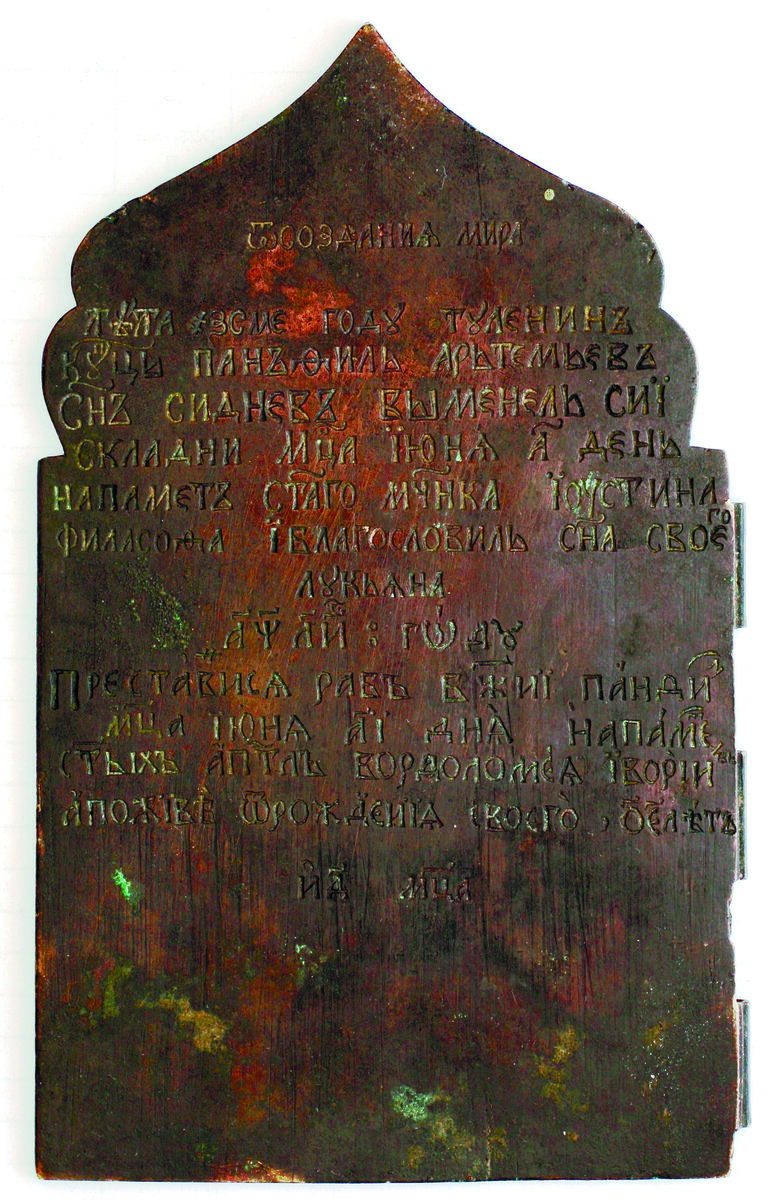 ѾСОЗДАНИѦ МИРА
ЛѢТА ҂ЗСМЕ ГОДУ ТУЛЕНИНЪ
КꙊЦЬ ПАНЪѲИЛЬ АРЬТЕМЬЕВЪ
СН҃Ъ СИДНЕВЪ ВЫМЕНЕЛЬ СИЇ
СКЛАДНИ МЦ҃А ЇЮНѦ А҃ ДЕНЬ
НАПАМЕТЬ СТ҃АГО МЧ҃НКА ЇОУСТИНА
ФИЛАСОѲА ЇБЛАГОСЛОВИЛЬ СН҃А СВОЕГО
ЛУКЬѦНА
҂АѰЛИ҃ : ГѠДꙊ
ПРЕСТАВИСѦ РАБЪ БЖ҃ИЇ
МЦ҃А ІЮНѦ АІ҃ ДНѦ НАПАМЕ
СТ҃ЫХЪ АПТ҃ЛЬ ВОРДОЛОМЕѦ
АПОЖІВѢ ѾРОЖДЕНІѦ СВОЕГО, ЛѢТЬ
МЦ҃А